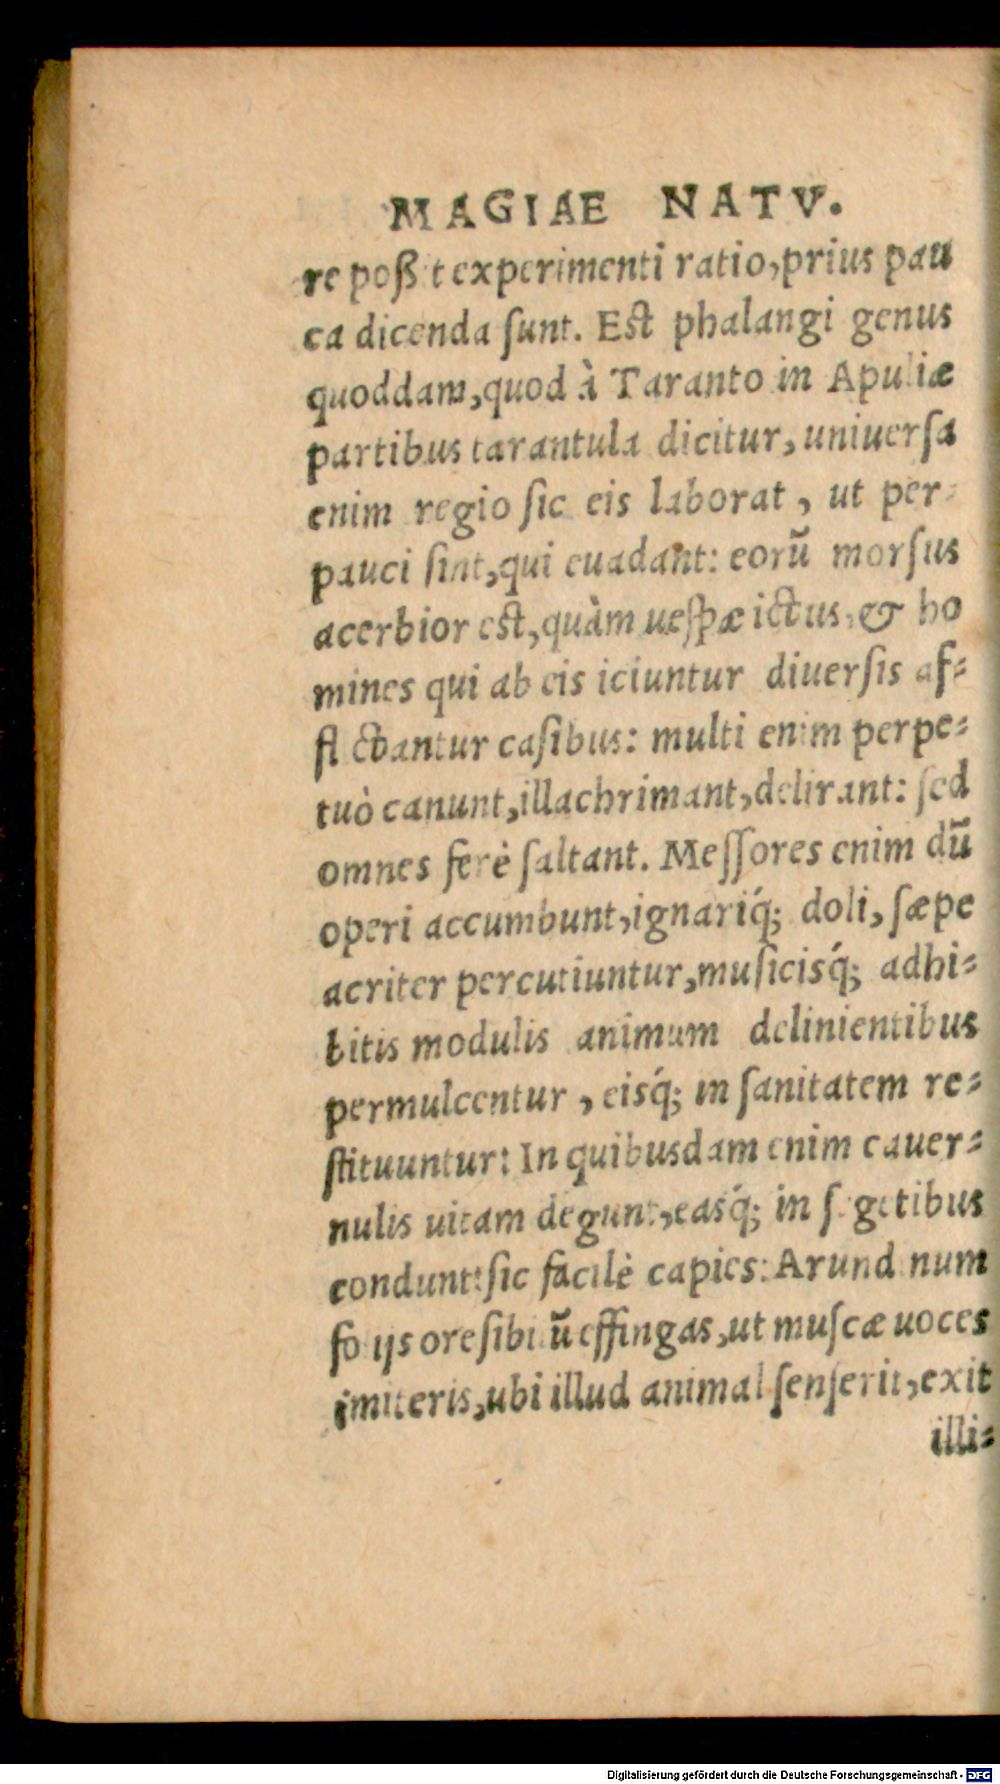 MAGIAE NATV.
re poßit experimenti ratio, prius pau
ca dicenda ſunt. Eſt phalangi genus
quoddam, quod à Taranto in Apuliæ
partibus tarantula dicitur, uniuerſa
enim regio ſic eis laborat, ut per-
pauci ſint, qui euadant: eorũ morſus
acerbior eſt, quàm ueſpæ ictus, & ho
mines qui ab eis iciuntur diuerſis af-
flictantur caſibus: multi enim perpe-
tuò canunt, illachrimant, delirant: ſed
omnes ferè ſaltant. Meſſores enim dũ
operi accumbunt, ignariq́; doli, ſæpe
acriter percutiuntur, muſicisq́; adhi-
bitis modulis animum delinientibus
permulcentur, eisq́; in ſanitatem re-
ſtituuntur: In quibusdam enim cauer-
nulis uitam degunt, easq́; in ſegetibus
condunt: ſic facilè capies: Arundinum
ſo ijs ore ſibilũ effingas, ut muſcæ uoces
imiteris, ubi illud animal ſenſerit, exit
illi-
Digitalisierung gefördert durch die Deutsche Forschungsgemeinschaft - DFG